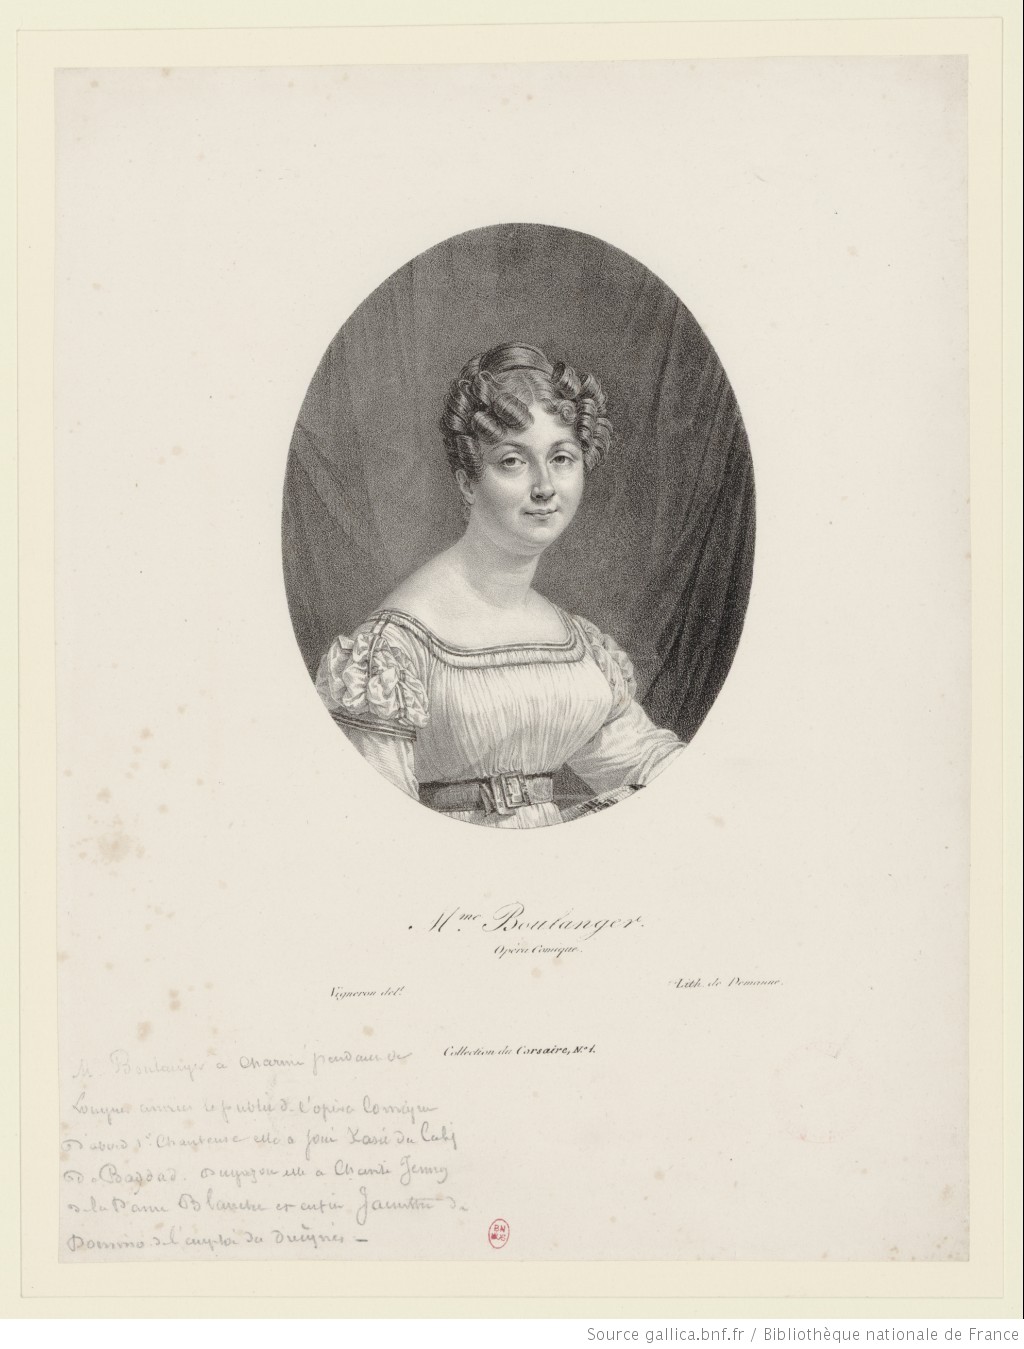 Mme. Boulanger.
Opéra Comique.
Vigneron delt.
Lith. de Demanne.
Collection du Corsaire, No. 1.
M Boulanger a charmé pendant de
Longues années le public de l'opéra Comique
D'abord 1e. Chanteuse elle a joué du Calif
De Bagdad. Dugazon elle a Chanté Jenny
de la Dame Blanche et enfin Jacinthe du
Domino de l'emploi des Duègnes —
BN
MUS
Source gallica.bnf.fr / Bibliothèque nationale de France